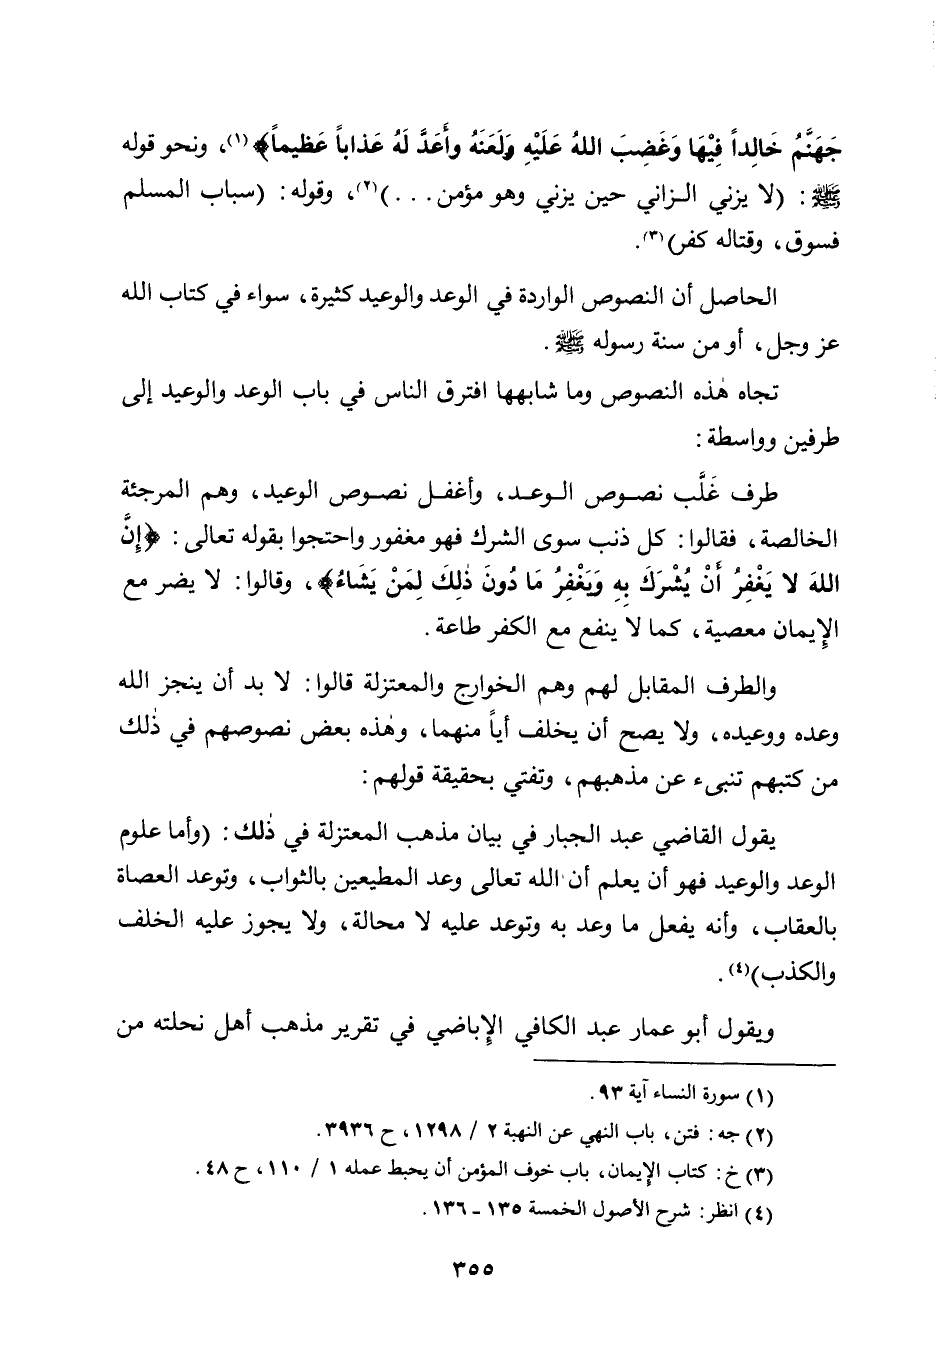 جَهَنَّمُ خَالِداً فِيْهَا وَغَضِبَ اللهُ عَلَيْهِ وَلَعَنَهُ وأَعَدَّ لَهُ عَذاباً عَظيماً﴾(١)، ونحو قوله
ﷺ: (لا يزني الـزاني حين يزني وهو مؤمن . . .)(٢)، وقوله: (سباب المسلم
فسوق، وقتاله كفر)(٣).
الحاصل أن النصوص الواردة في الوعد والوعيد كثيرة، سواء في كتاب الله
عز وجل، أو من سنة رسوله ﷺ.
تجاه هٰذه النصوص وما شابهها افترق الناس في باب الوعد والوعيد إلى
طرفين وواسطة:
طرف غَلَّب نصـوص الـوعـد، وأغفـل نصـوص الوعيد، وهم المرجئة
الخالصة، فقالوا: كل ذنب سوى الشرك فهو مغفور واحتجوا بقوله تعالى: ﴿إِنَّ
اللهَ لا يَغْفِرُ أَنْ يُشْرَكَ بِهِ وَيَغْفِرُ مَا دُونَ ذٰلِكَ لِمَنْ يَشَاءُ﴾، وقالوا: لا يضر مع
الإِيمان معصية، كما لا ينفع مع الكفر طاعة.
والطرف المقابل لهم وهم الخوارج والمعتزلة قالوا: لا بد أن ينجز الله
وعده ووعيده، ولا يصح أن يخلف أياً منهما، وهٰذه بعض نصوصهم في ذٰلك
من كتبهم تنبىء عن مذهبهم، وتفتي بحقيقة قولهم:
يقول القاضي عبد الجبار في بيان مذهب المعتزلة في ذٰلك: (وأما علوم
الوعد والوعيد فهو أن يعلم أن الله تعالى وعد المطيعين بالثواب، وتوعد العصاة
بالعقاب، وأنه يفعل ما وعد به وتوعد عليه لا محالة، ولا يجوز عليه الخلف
والكذب)(٤).
ويقول أبو عمار عبد الكافي الإِباضي في تقرير مذهب أهل نحلته من
(١) سورة النساء آية ٩٣.
(٢) جه: فتن، باب النهي عن النهبة ٢ / ١٢٩٨، ح ٣٩٣٦.
(٣) خ: كتاب الإِيمان، باب خوف المؤمن أن يحبط عمله ١ / ١١٠، ح ٤٨.
(٤) انظر: شرح الأصول الخمسة ١٣٥ ـ ١٣٦.
٣٥٥